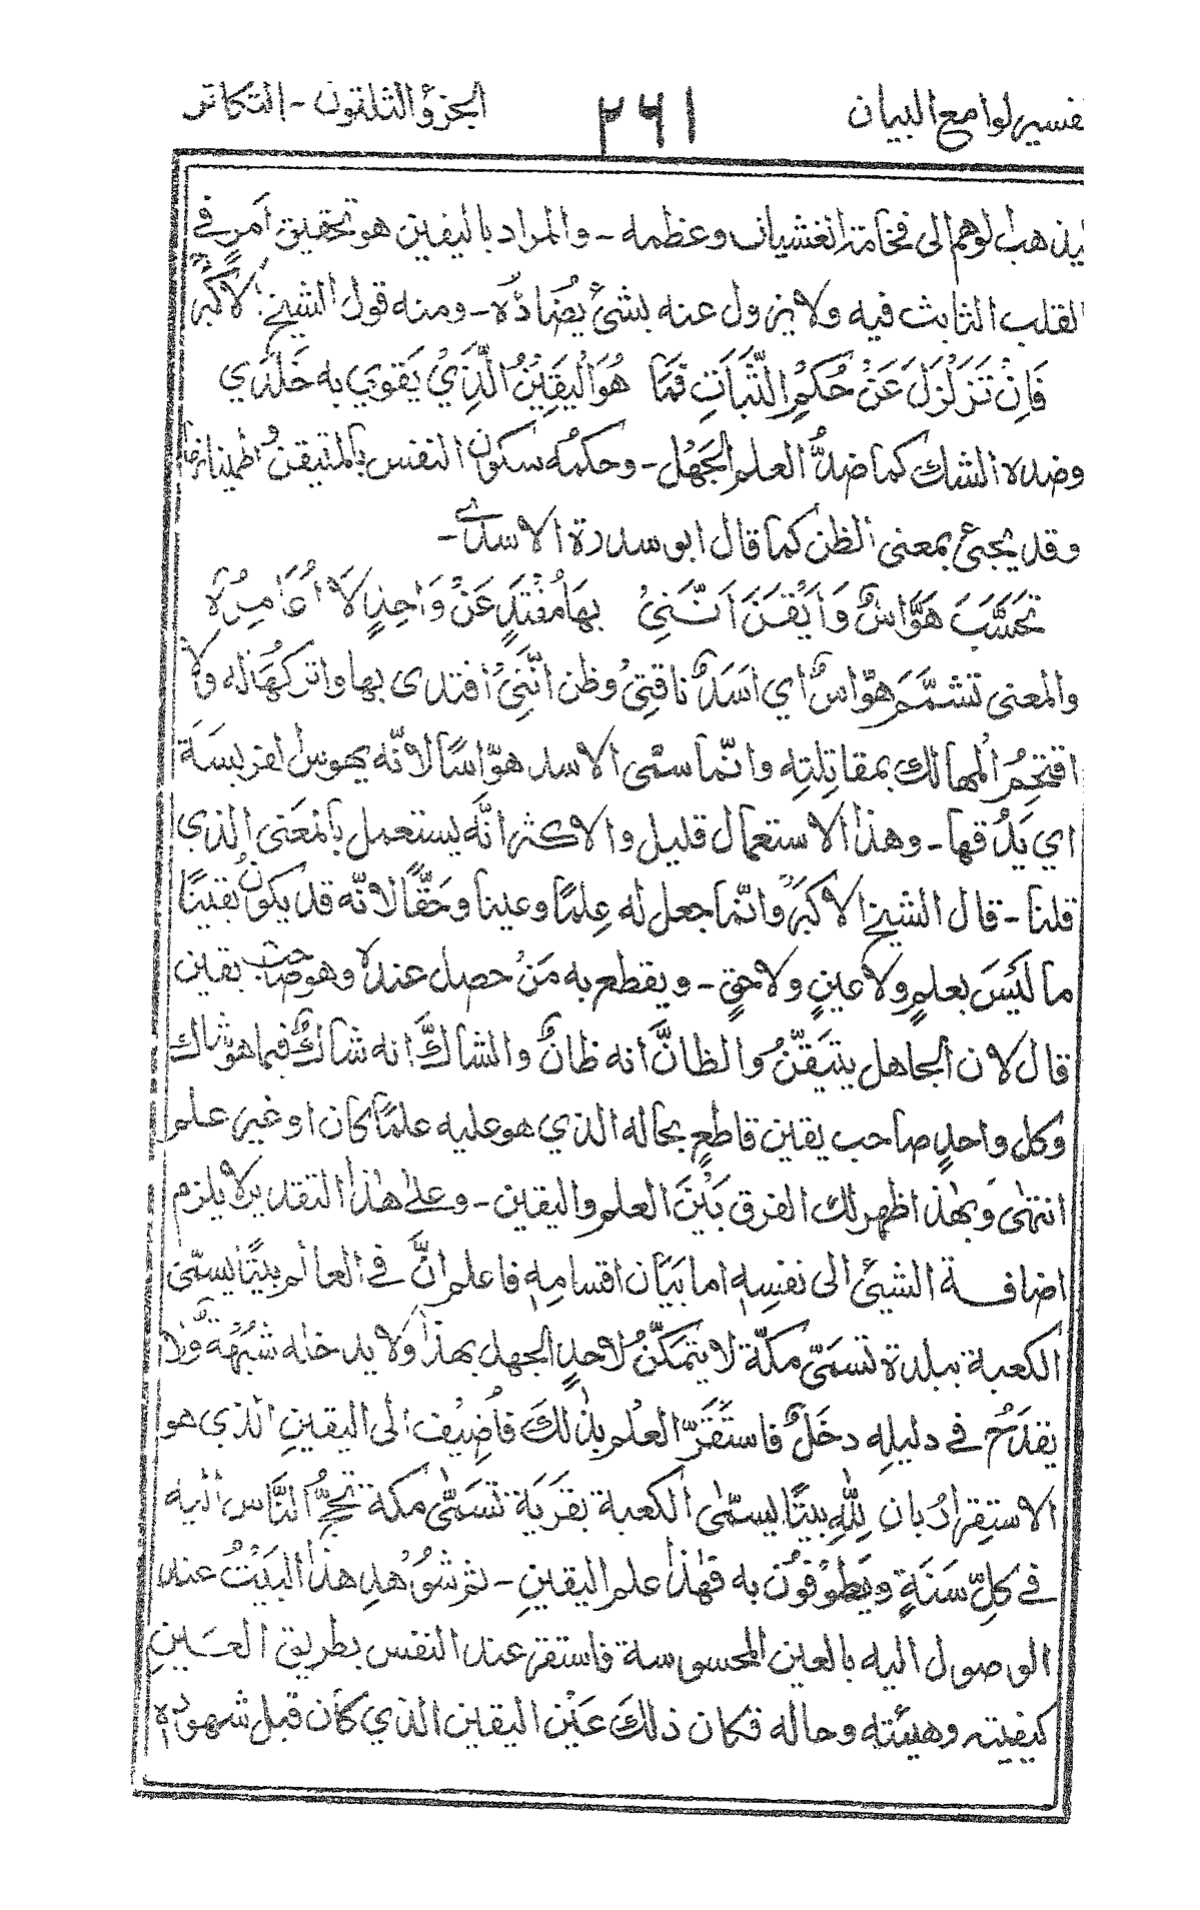 تفسير لوامع البيان ٢٦١ الجزؤ الثلثون - التكاثر
ليذهب الوهم الى فخامة الغشيان وعظمه - والمراد باليقين هو تحقيق امرٍ في
القلب الثابث فيه ولا يزول عنه بشئ يُضَادُّه - ومنه قول الشيخ الاكبر
فَاِنْ تَزَلْزَلَ عَنْ حُكمِ الثَّبَاتِ فَمَا هُوَ الْيَقِيْنُ الَّذِيْ يَقوي به خَلَدي
وضده الشك كما ضدُّ العلم الجَهْل - وحكمُه سكون النفس بالمتيقن اطمينانها
وقد يجئ بمعنى الظن كما قال ابو سدرة الاسدي -
تَحَسَّبَ هَوَّاسٌ وَاَيْقَنَ اَنَّنِيْ بِهَا مُفْتَدٍ عَنْ وَاحِدٍ لَا اُغَامِرُهْ
والمعنى تشمَّمَ هوّاسٌ اي اسَدٌ ناقتِيْ وظن انَّنِيْ افتدى بها واتركُهَا له ولا
اقتحِمُ المهالك بمقاتلتِه وانّما سمّى الاسد هوّاسًا لانّه يهوس الفريسَة
اي يَدُقها - وهذا الاستعمال قليل والاكثر انَّه يستعمل بالمعَنى الذي
قلنا - قال الشيخ الاكبر وانّما جعل له عِلمًا وعينا وحَقّاً لانّه قد يكون يقينًا
ما لَيْسَ بعلمٍ ولا عينٍ ولا حقٍ - ويقطع به مَنْ حصل عنده وهو صاحب يقين
قال لان الجاهل يتيَقّنُ والظانَّ انه ظانٌ والشاكَّ انه شاكٌ فيما هو شاك
وكل واحدٍ صاحب يقين قاطعٍ بحاله الذي هو عليه علمًا كان او غير علم
انتهٰى وَبهٰذا ظهر لك الفرق بَيْنَ العلم واليقين - وعلےٰ هٰذا التقدير لا يلزم
اضافة الشيئ الى نفسِه اما بَيَان اقسامِه فاعلم انَّ في العالم بيتًا يسمّى
الكعبة ببلدة تسمَىّ مكّة لا يتمكّنُ لاحدٍ الجهل بهذا ولا يدخله شُبهَة وّلا
يقدَحُ في دليلِه دخَلٌ فاستَقَرّ العلم بذٰلكَ فاُضِيْف الى اليقينِ الذي هو
الاستِقرارُ بان لِلّٰهِ بيتًا يسمّٰى الكعبة بقَريَة تسَمّٰى مكة تحجُّ النَّاس اليه
في كلِّ سَنَةٍ ويَطوْفوُن به فهٰذا علم اليقينِ - ثم شوُهِد هذا البَيْتُ عند
الوصول اليه بالعين المحسوسة فاستقر عند النفس بطريق العَينِ
كيفيته وهيئته وحاله فكان ذلكَ عَيْن اليقين الذي كان قبل شهوده